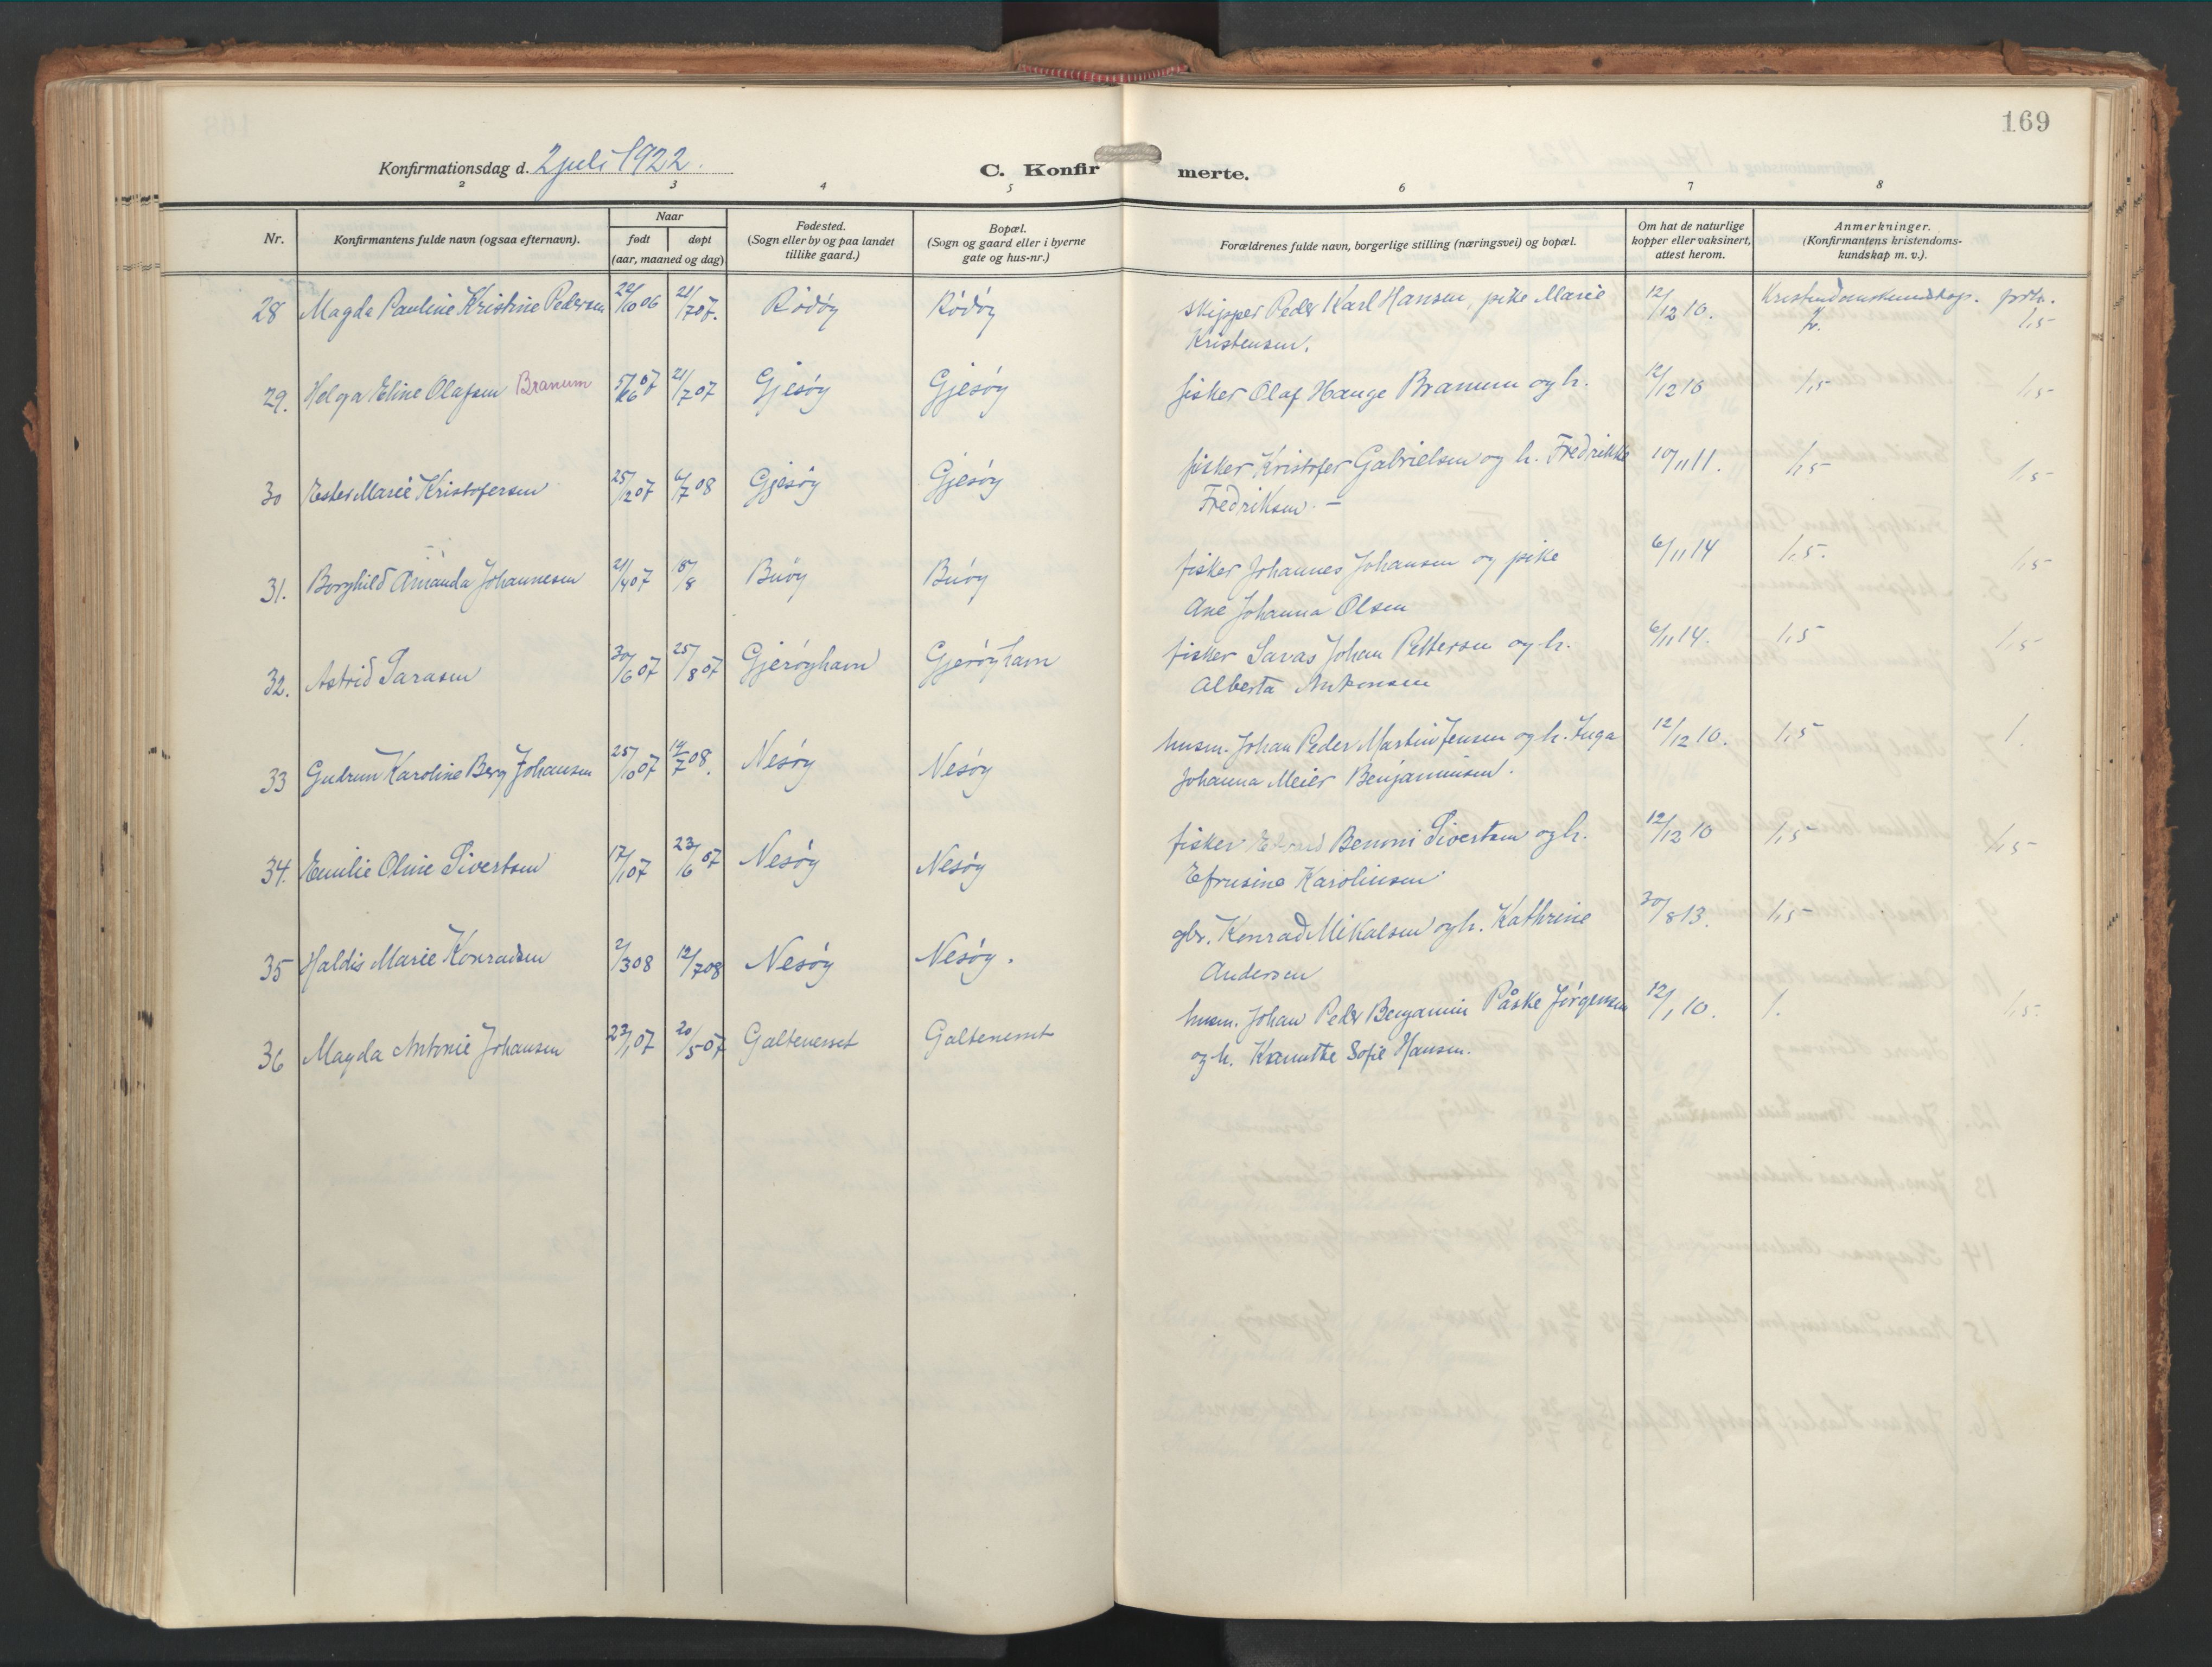 169
Konfirmationsdag d. 2 juli 1922.
C. Konfirmerte.
2 3 4 5 6 7 8
Nr.
Konfirmantens fulde navn (ogsaa efternavn).
Naar
født døpt
(aar, maaned og dag)
Fødested.
(Sogn eller by og paa landet
tillike gaard.)
Bopæl.
(Sogn og gaard eller i byerne
gate og hus-nr.)
Forældrenes fulde navn, borgerlige stilling (næringsvei) og bopæl.
Om hat de naturlige
kopper eller vaksinert,
attest herom.
Anmerkninger.
(Konfirmantens kristendoms-
kundskap m. v.).
28 Magda Pauline Kristine Pedersen 22/10 06 21/7 07. Rödöy Rödöy skipper Peder Karl Hansen, pike Marie 12/12 10. Kristendomskundskap.
Kristensen. 2. 1,5
29. Helga Eline Olafsen Branum 21/7 07 Gjesöy Gjesöy fisker Olaf Hauge Branum og h. 12/12 10 1,5 1,5
30 Ester Marie Kristofersen 25/2 07 6/7 08 Gjesöy Gjesöy fisker Kristofer Gabrielsen og h. Fredrikke 10/11 11. 1,5 1,5
Fredriksen. –
31. Borghild Amanda Johannesen 21/4 07 18/8 Buöy Buöy fisker Johannes Johansen og pike 6/11 14 1,5. 1,5
Ane Johanna Olsen
32. Astrid Sarasen 30/6 07 25/8 07 Gjeröyhavn Gjeröyhavn fisker Saras Johan Pettersen og h. 6/11 14. 1,5 1,5
Alberta
33 Gudrun Karoline Berg Johansen 25/10 07 19/7 08. Nesöy Nesöy husm. Johan Peder Martin Jensen og h. Inga 12/12 10. 1,5 1.
Johanna Meier Benjaminsen.
34. Emilie Oline Sivertsen 17/1 07 23/6 07 Nesöy Nesöy fisker Edvard Benoni Sivertsen og h. 12/12 10 1,5 1,5
Efrusine Karolinsen
35 Haldis Marie Konradsen 2/3 08 12/7 08 Nesöy Nesöy. gbr. Konrad Mikalsen og h. Kathrine 30/8 13. 1,5
Andersen
36 Magda Antonie Johansen 23/1 07 20/5 07 Galtenesset Galtenesset husm. Johan Peder Benjamin Påske Jörgensen 12/1 10. 1. 1,5
og h. Kanutte Sofie Hansen.